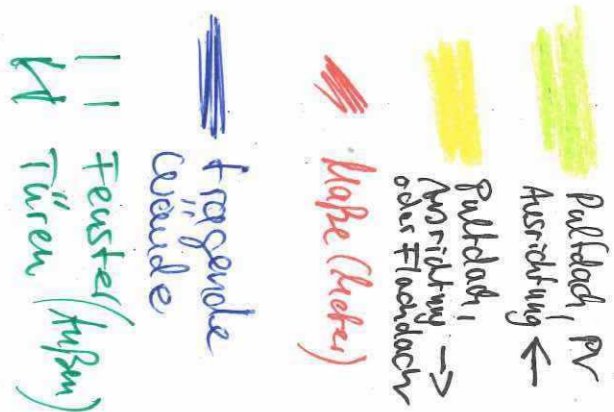 Pultdach, PV
Ausrichtung ←
Pultdach,
Ausrichtung →
oder Flachdach
Maße (Meter)
tragende
Wände
Fenster/(Außen)
Türen